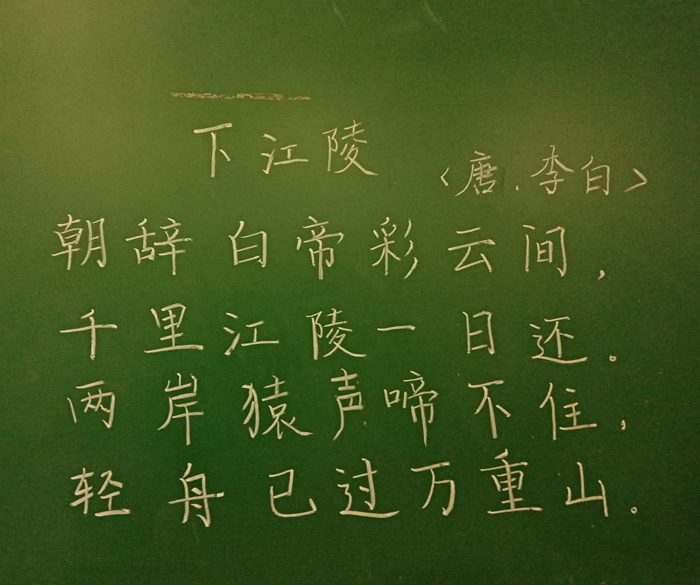 下江陵
<唐.李白>
朝辞白帝彩云间,
千里江陵一日还。
两岸猿声啼不住,
轻舟已过万重山。